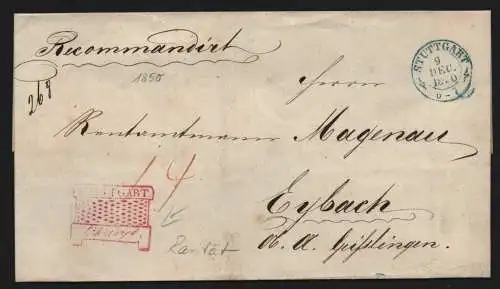 Recommandirt
1850
267
STUTTGART
9
DEC.
1850
Herrn
Rentamtmann Magenau
14
STUTTGART
Chargé.
Eybach
Rarität
o. a. Geißlingen.